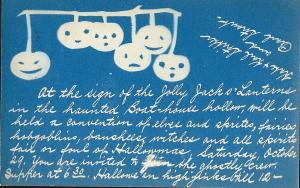 At the sign of the Jolly Jacks o' Lanterns
in the haunted Boathouse hollow, will be
held a convention of elves and sprites, fairies
hobgoblins, banshees, witches and all spirits
fair or foul of Hallowmas - Saturday, October
29. You are invited to join the ghostly crew.
Supper at 6 30. Hallowe'en high jinks till 12 -